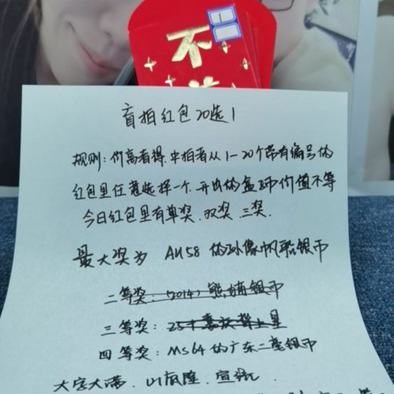 不
盲拍红包20选1
规则:价高者得.中拍者从1-20个带有编号的
红包里任意选择一个.开出的盒子币价值不等
今日红包里有单奖.双奖.三奖.
最大奖为 AU58 的孙像帆船银币
二等奖:
三等奖:
四等奖:MS64的广东二毫银币
大字大带.